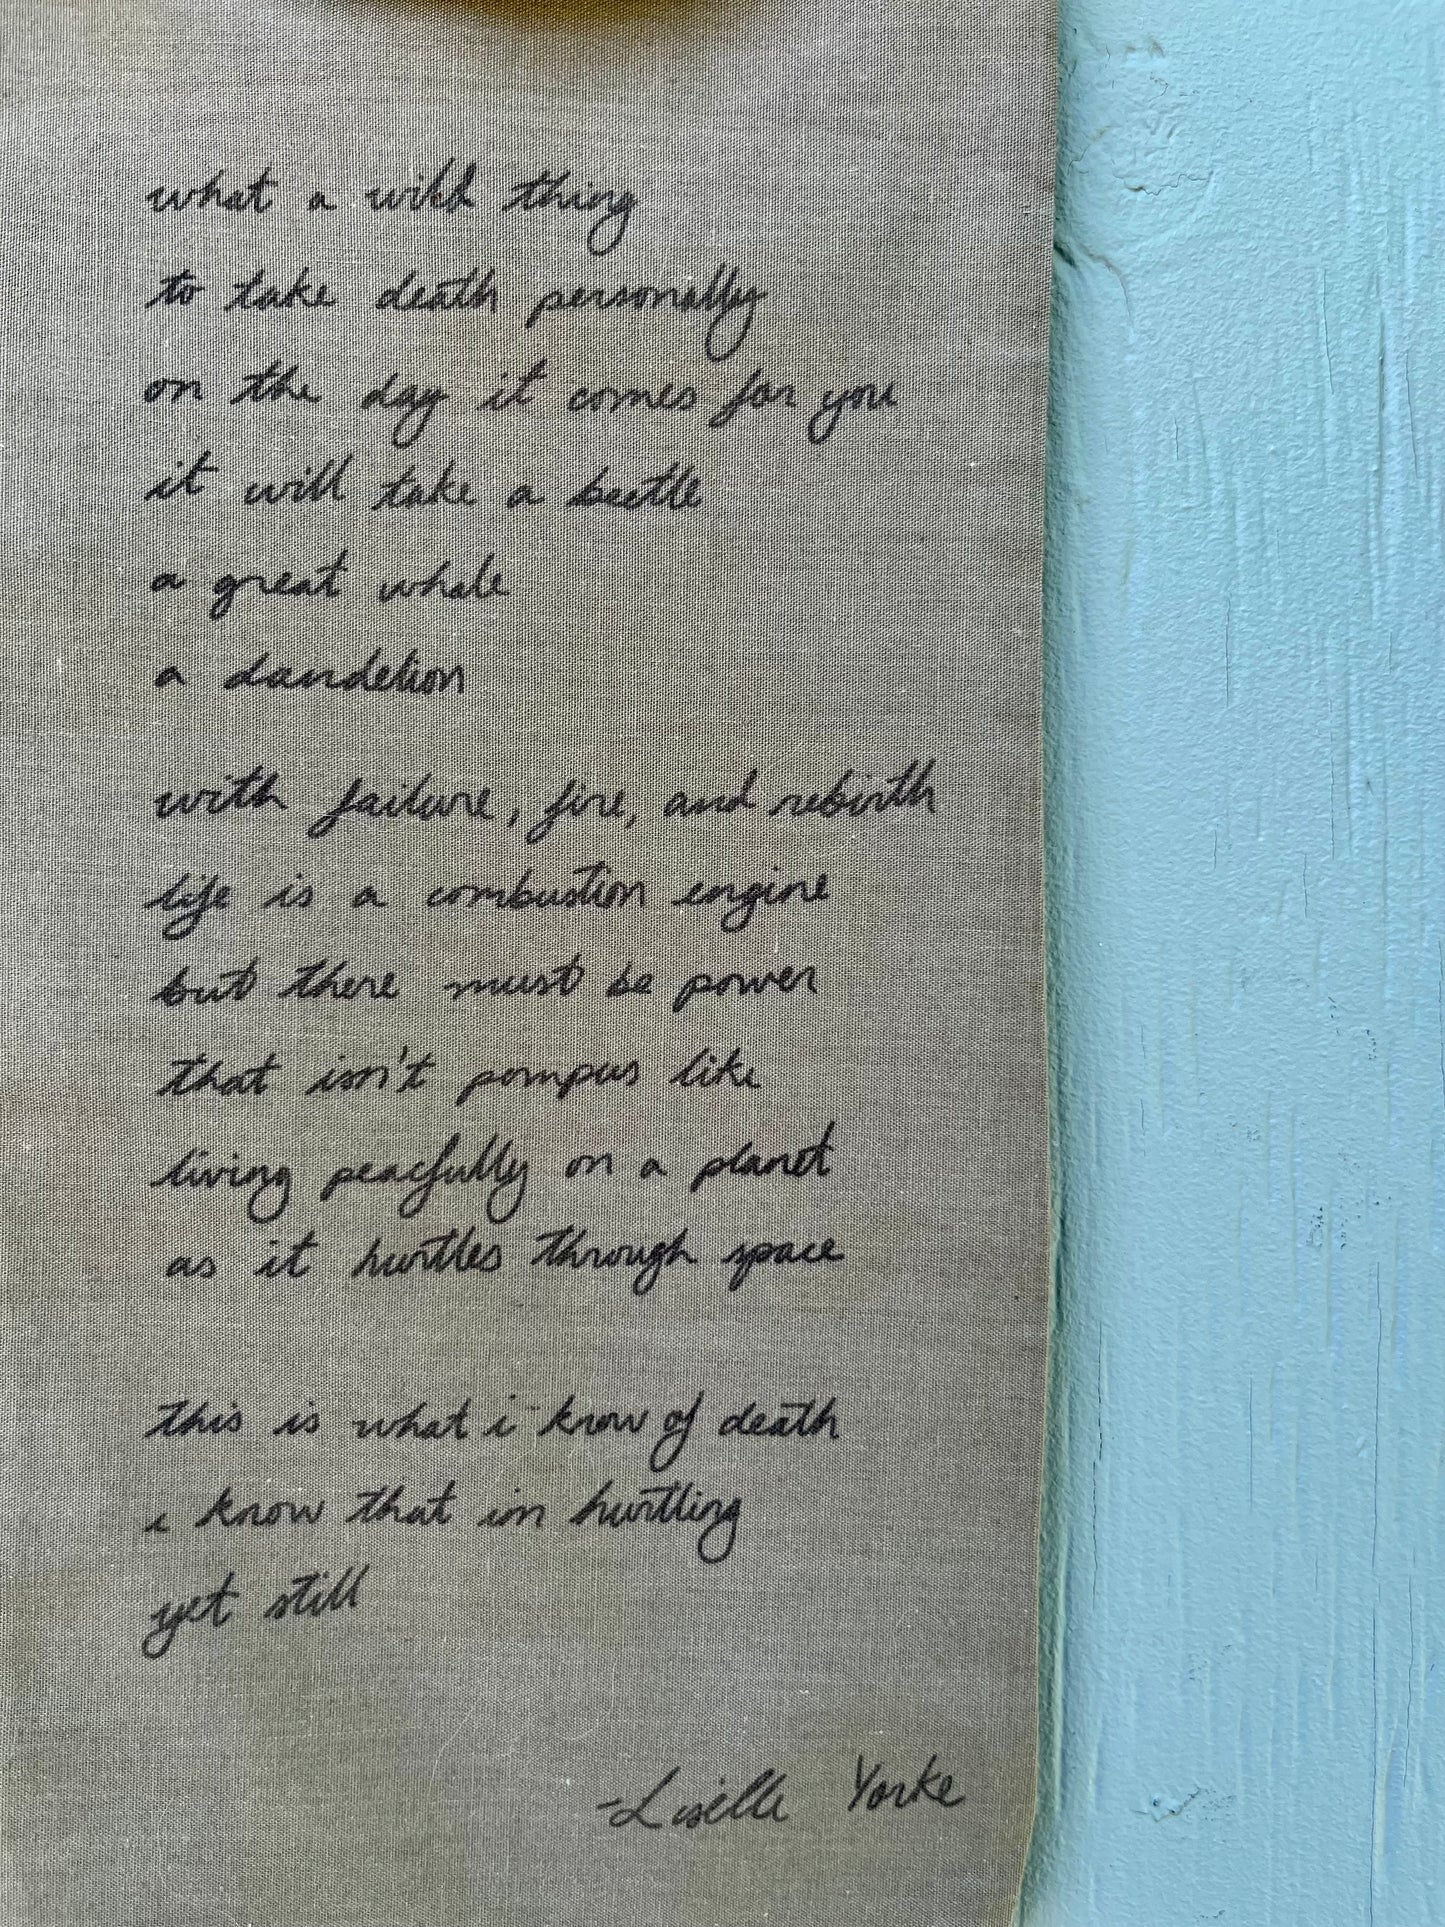 what a wild thing
to take death personally
on the day it comes for you
it will take a beetle
a great whale
a dandelion
with failure, fire, and rebirth
life is a combustion engine
but there must be power
that isn't pompus like
living peacfully on a planet
as it hurtles through space
this is what i know of death
i know that im hurtling
yet still
-Liselle Yorke